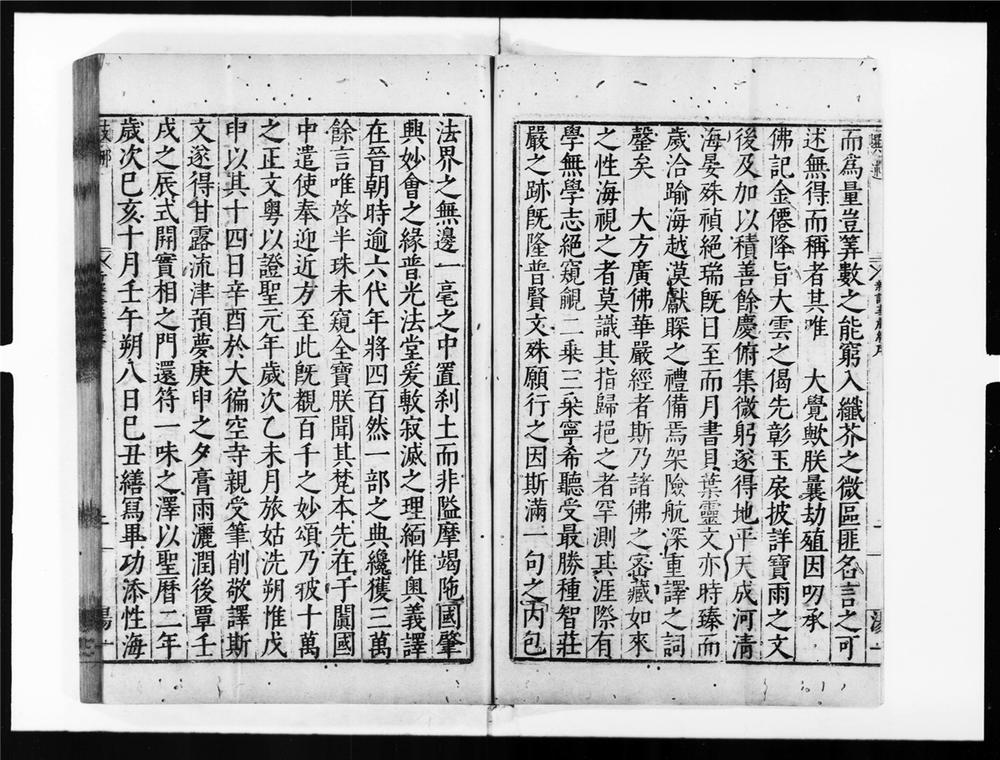 而爲量豈筭數之能窮入纖芥之微區匪名言之可
述無得而稱者其唯　大覺歟朕曩劫殖因叨承
佛記金僊降旨大雲之偈先彰玉扆披詳寶雨之文
後及加以積善餘慶俯集微躬遂得地平天成河清
海晏殊禎絕瑞旣日至而月書貝葉靈文亦時臻而
歲洽踰海越漠獻賝之禮備焉架險航深重譯之詞
罄矣　大方廣佛華嚴經者斯乃諸佛之密藏如來
之性海視之者莫識其指歸挹之者罕測其涯際有
學無學志絕窺覦二乗三乗寧希聽受最勝種智莊
嚴之跡旣隆普賢文殊願行之因斯滿一句之內包
法界之無邊一毫之中置刹土而非隘摩竭陁國肇
興妙會之緣普光法堂爰敷寂滅之理緬惟奧義譯
在晉朝時逾六代年將四百然一部之典纔獲三萬
餘言唯啓半珠未窺全寶朕聞其梵本先在于闐國
中遣使奉迎近方至此旣覩百千之妙頌乃披十萬
之正文粵以證聖元年歲次乙未月旅姑洗朔惟戊
申以其十四日辛酉於大徧空寺親受筆削敬譯斯
文遂得甘露流津預夢庚申之夕膏雨灑潤後覃壬
戌之辰式開實相之門還符一味之澤以聖曆二年
歲次己亥十月壬午朔八日己丑繕寫畢功添性海